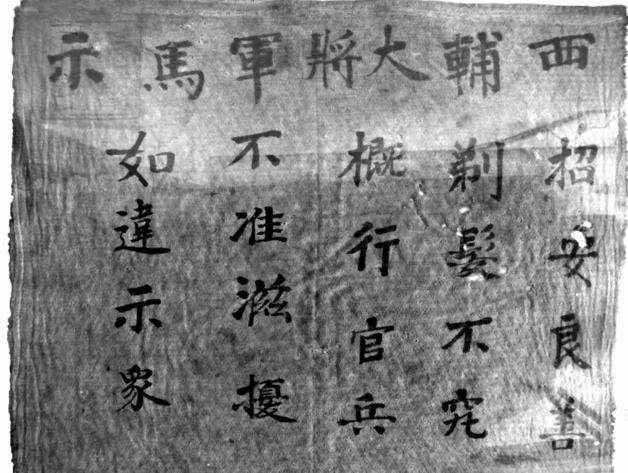 西輔大將軍馬示
招安良善
剃髮不究
概行官兵
不准滋擾
如違示眾